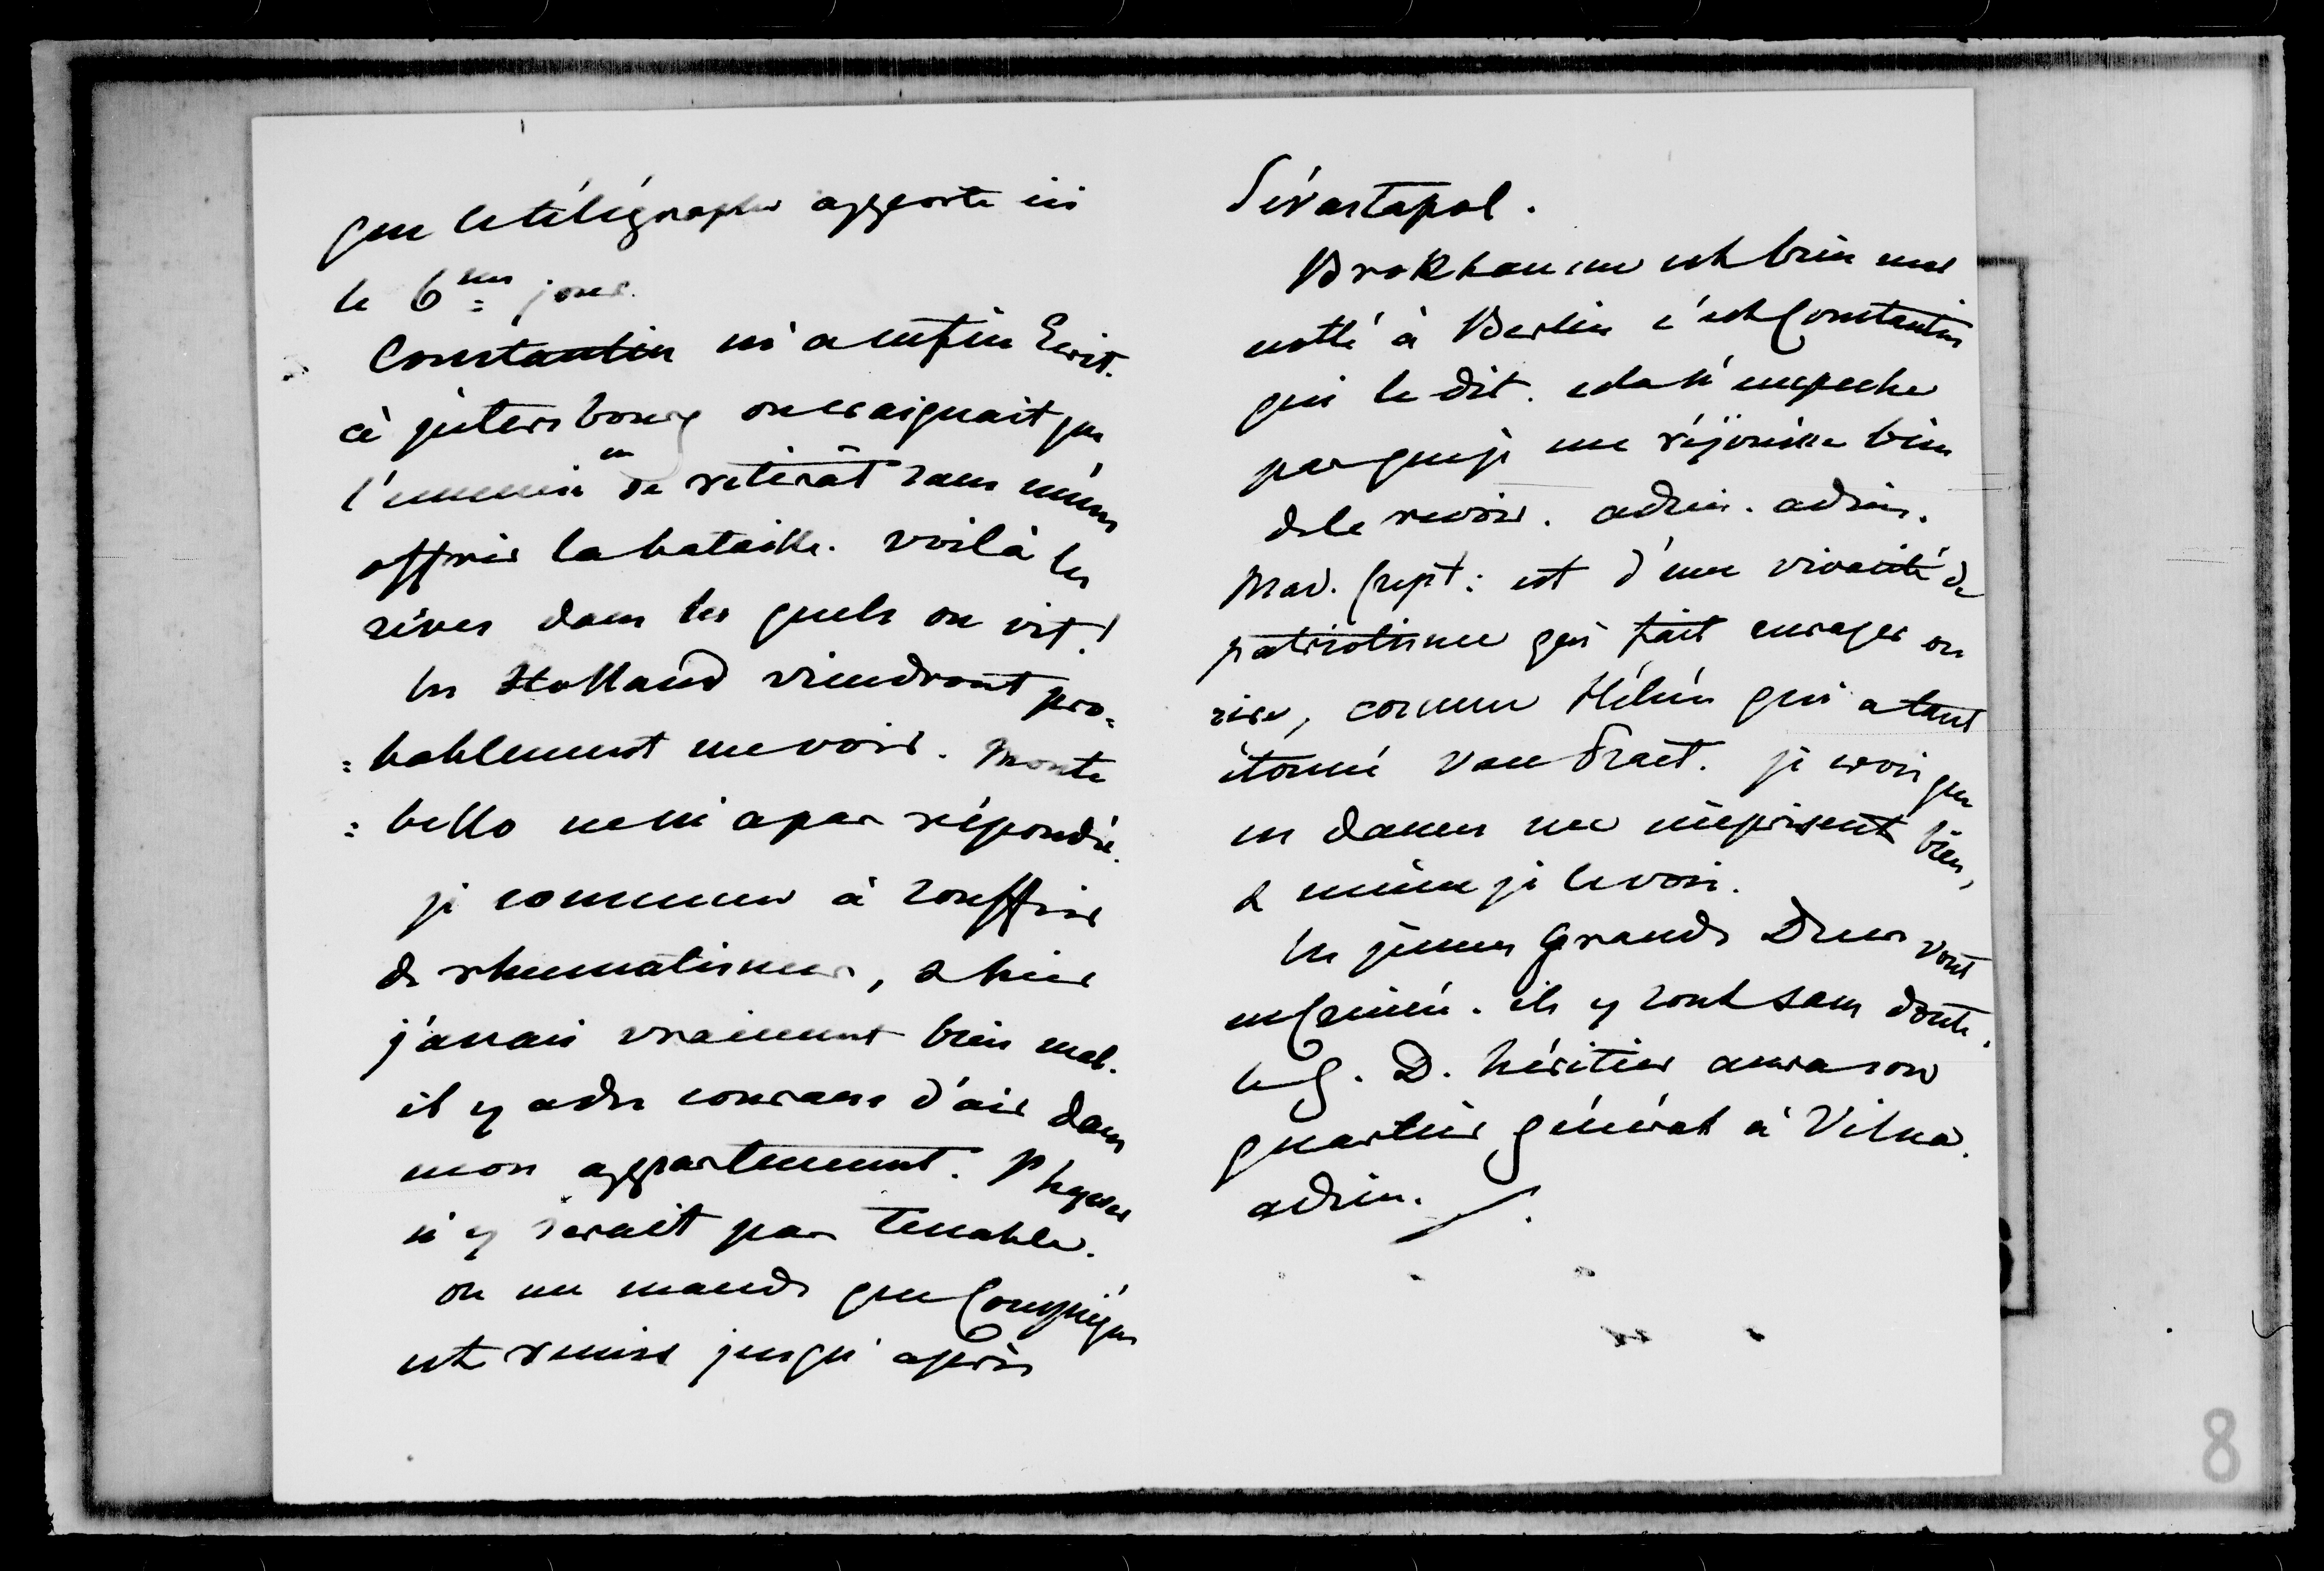 que le télégraphe apporte ici
le 6me jour.
Constantin m'a enfin Ecrit.
à petersbourg on craignait que
l'ennemi en se retirât sans même
offrir la bataille. voilà les
rêves dans les quels on vit!
les Holland viendront pro=
=bablement me voir. Monte
=bello ne m'a pas répondu.
je commence à souffrir
de rhumatismes, & hier
j'avais vraiment bien mal.
il y a des courans d'air dans
mon appartement. l'hyver
n'y serait pas tenable.
on me mande que Compiégne
est remis jusqu'après
Sévastapol.
Brokhausen est bien mal
notté à Berlin c'est Constantin
qui le dit. cela n'empeche
pas que je me réjouisse bien
de le revoir. adieu. adieu.
Mad. Crept: est d'une vivacité de
patriotisme qui fait enrager ou
rire, comme Hélène qui a tant
étonné Van Praet. je crois que
ces dames me méprisent bien,
& même je le vois.
les jeunes Grands Ducs vont
en Crimée. ils y sont sans doute.
le G. D. héritier aura son
quartier général à Vilna.
adieu.
8